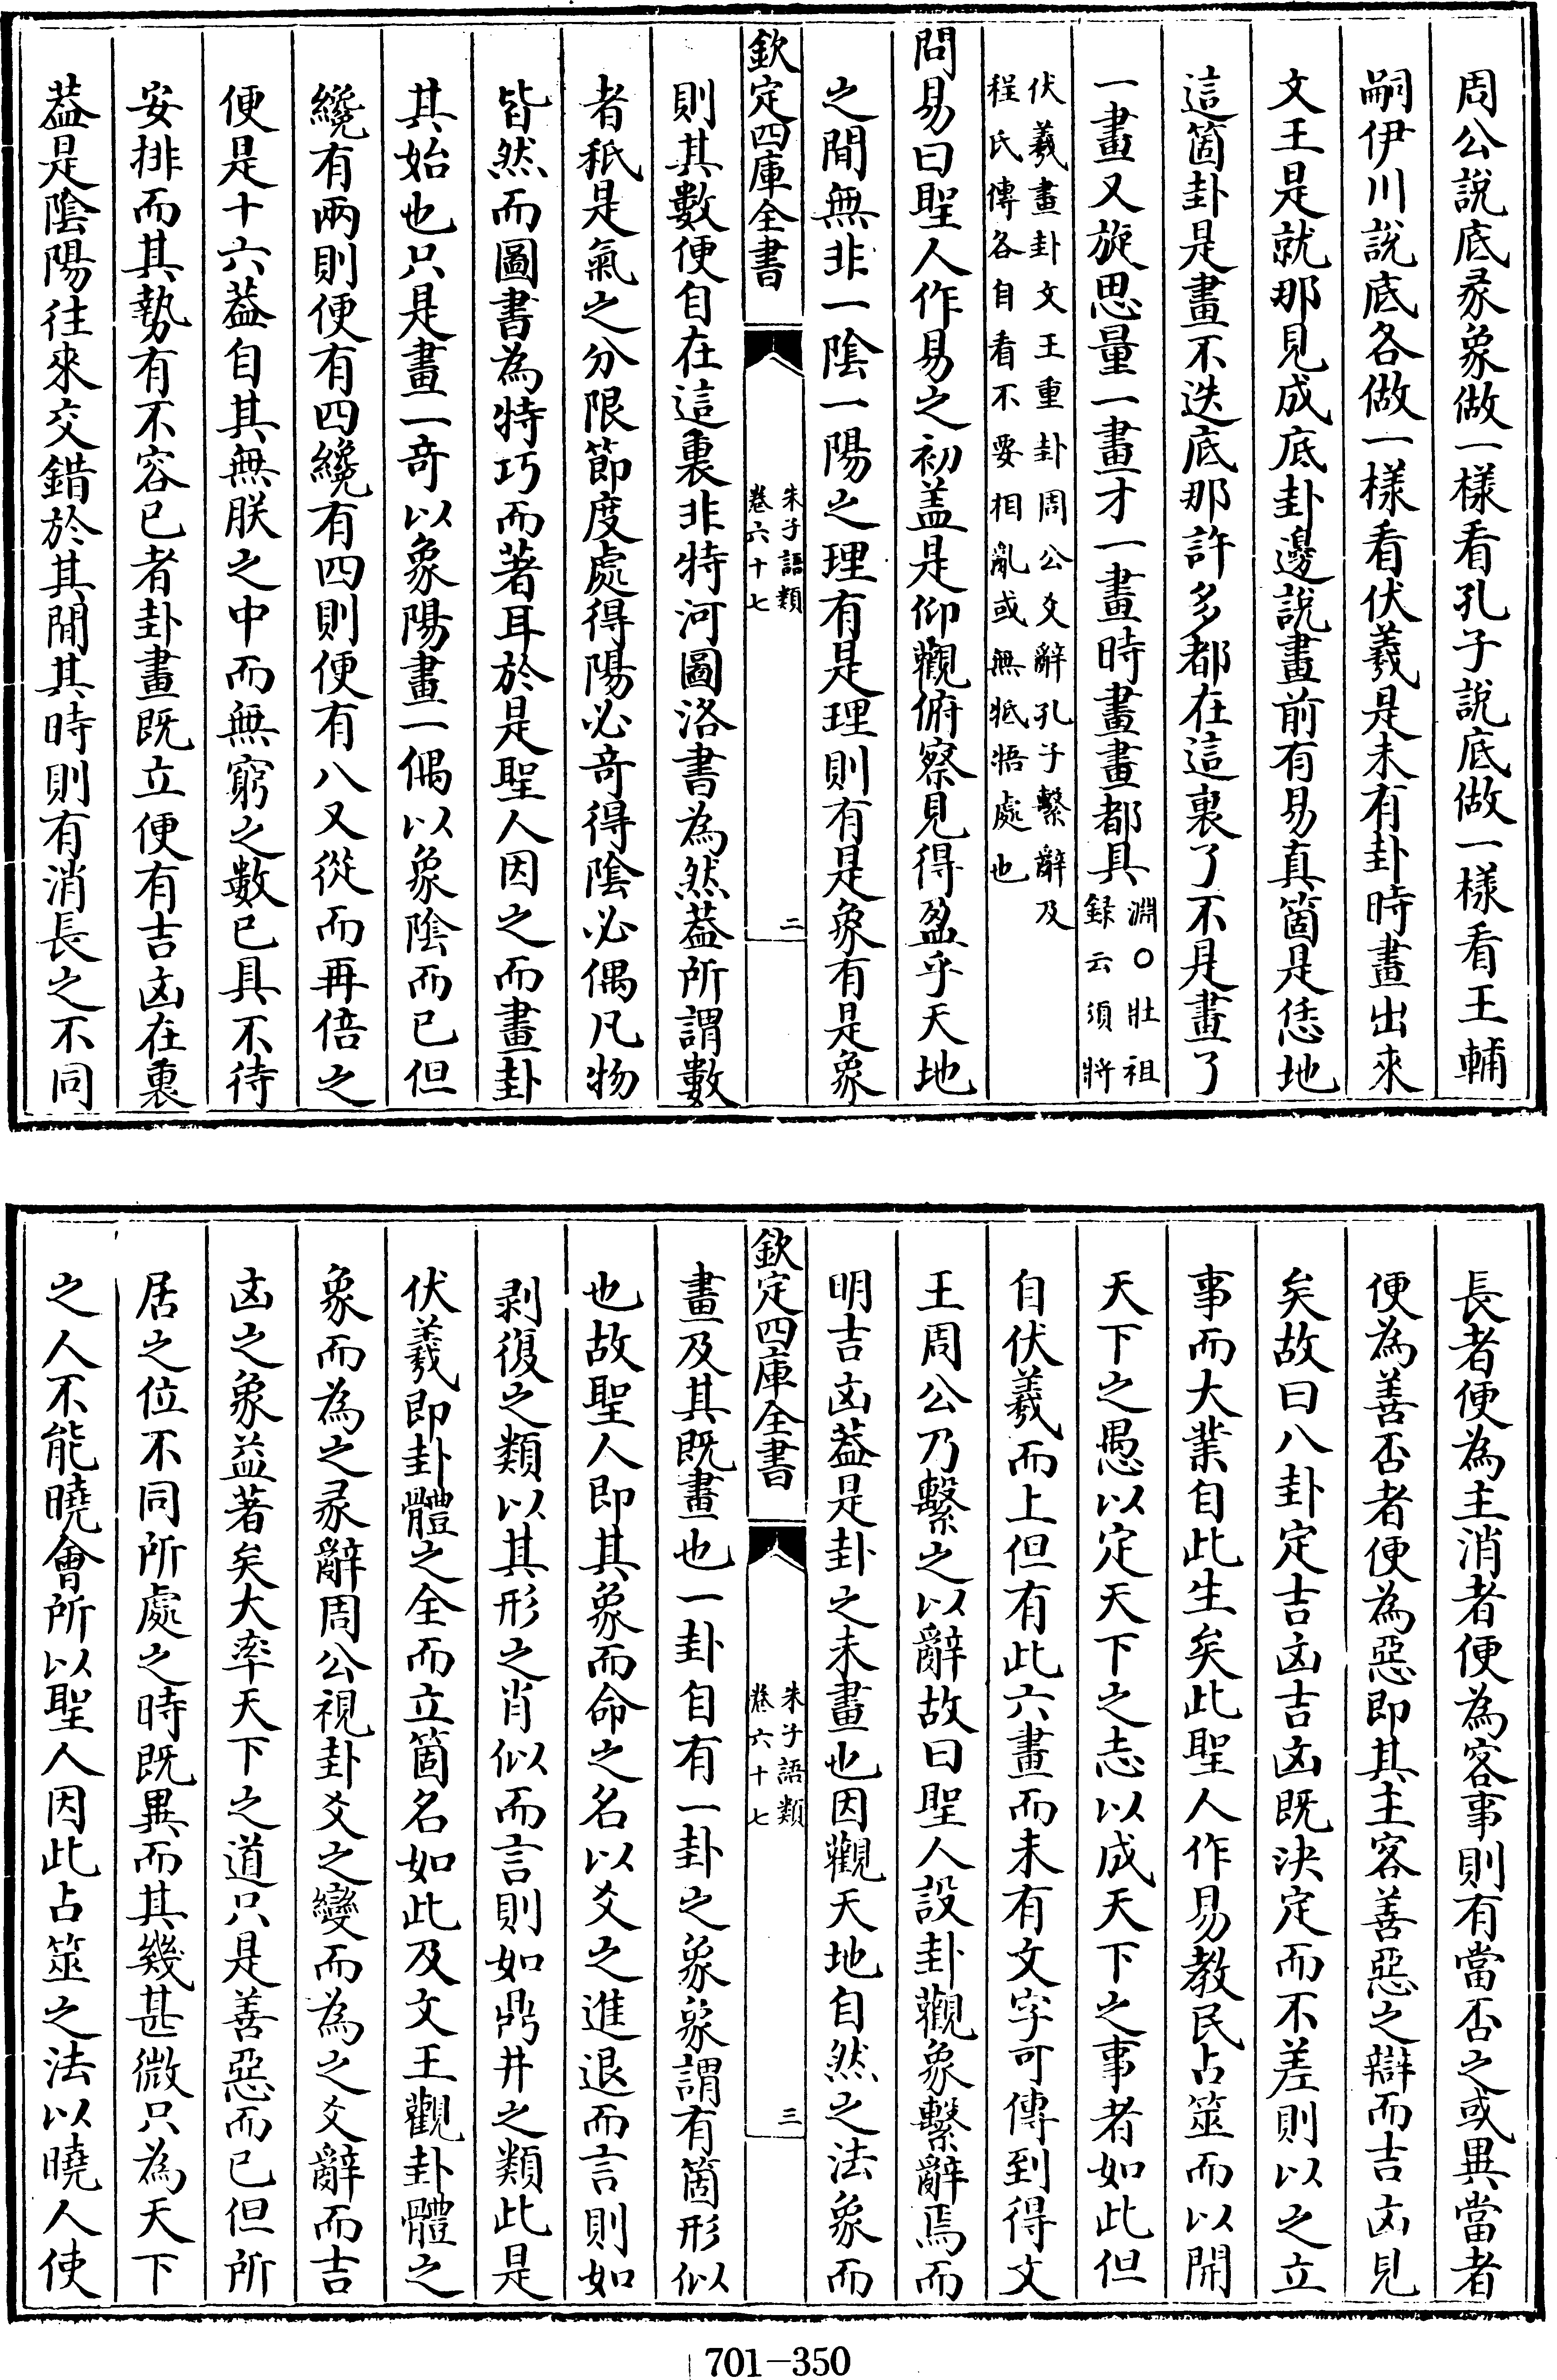 周公說底彖象做一樣看孔子說底做一樣看王輔
嗣伊川說底各做一樣看伏羲是未有卦時畫出來
文王是就那見成底卦邊說畫前有易真箇是恁地
這箇卦是畫不迭底那許多都在這裏了不是畫了
一畫又旋思量一畫才一畫時畫畫都具淵○壯祖
錄云須將
伏羲畫卦文王重卦周公爻辭孔子繫辭及
程氏傳各自看不要相亂或無牴牾處也
問易曰聖人作易之初盖是仰觀俯察見得盈乎天地
之間無非一陰一陽之理有是理則有是象有是象
欽定四庫全書
朱子語類
卷六十七
二
則其數便自在這裏非特河圖洛書為然葢所謂數
者秖是氣之分限節度處得陽必竒得陰必偶凡物
皆然而圖書為特巧而著耳於是聖人因之而畫卦
其始也只是畫一竒以象陽畫一偶以象陰而已但
纔有兩則便有四纔有四則便有八又從而再倍之
便是十六葢自其無朕之中而無窮之數已具不待
安排而其勢有不容已者卦畫既立便有吉凶在裏
葢是陰陽往來交錯於其間其時則有消長之不同
長者便為主消者便為客事則有當否之或異當者
便為善否者便為惡即其主客善惡之辯而吉凶見
矣故曰八卦定吉凶吉凶既決定而不差則以之立
事而大業自此生矣此聖人作易教民占筮而以開
天下之愚以定天下之志以成天下之事者如此但
自伏羲而上但有此六畫而未有文字可傳到得文
王周公乃繫之以辭故曰聖人設卦觀象繫辭焉而
明吉凶葢是卦之未畫也因觀天地自然之法象而
欽定四庫全書
朱子語類
卷六十七
三
畫及其既畫也一卦自有一卦之象象謂有箇形似
也故聖人即其象而命之名以爻之進退而言則如
剥復之類以其形之肖似而言則如鼎井之類此是
伏羲即卦體之全而立箇名如此及文王觀卦體之
象而為之彖辭周公視卦爻之變而為之爻辭而吉
凶之象益著矣大率天下之道只是善惡而已但所
居之位不同所處之時既異而其幾甚微只為天下
之人不能曉會所以聖人因此占筮之法以曉人使
701-350